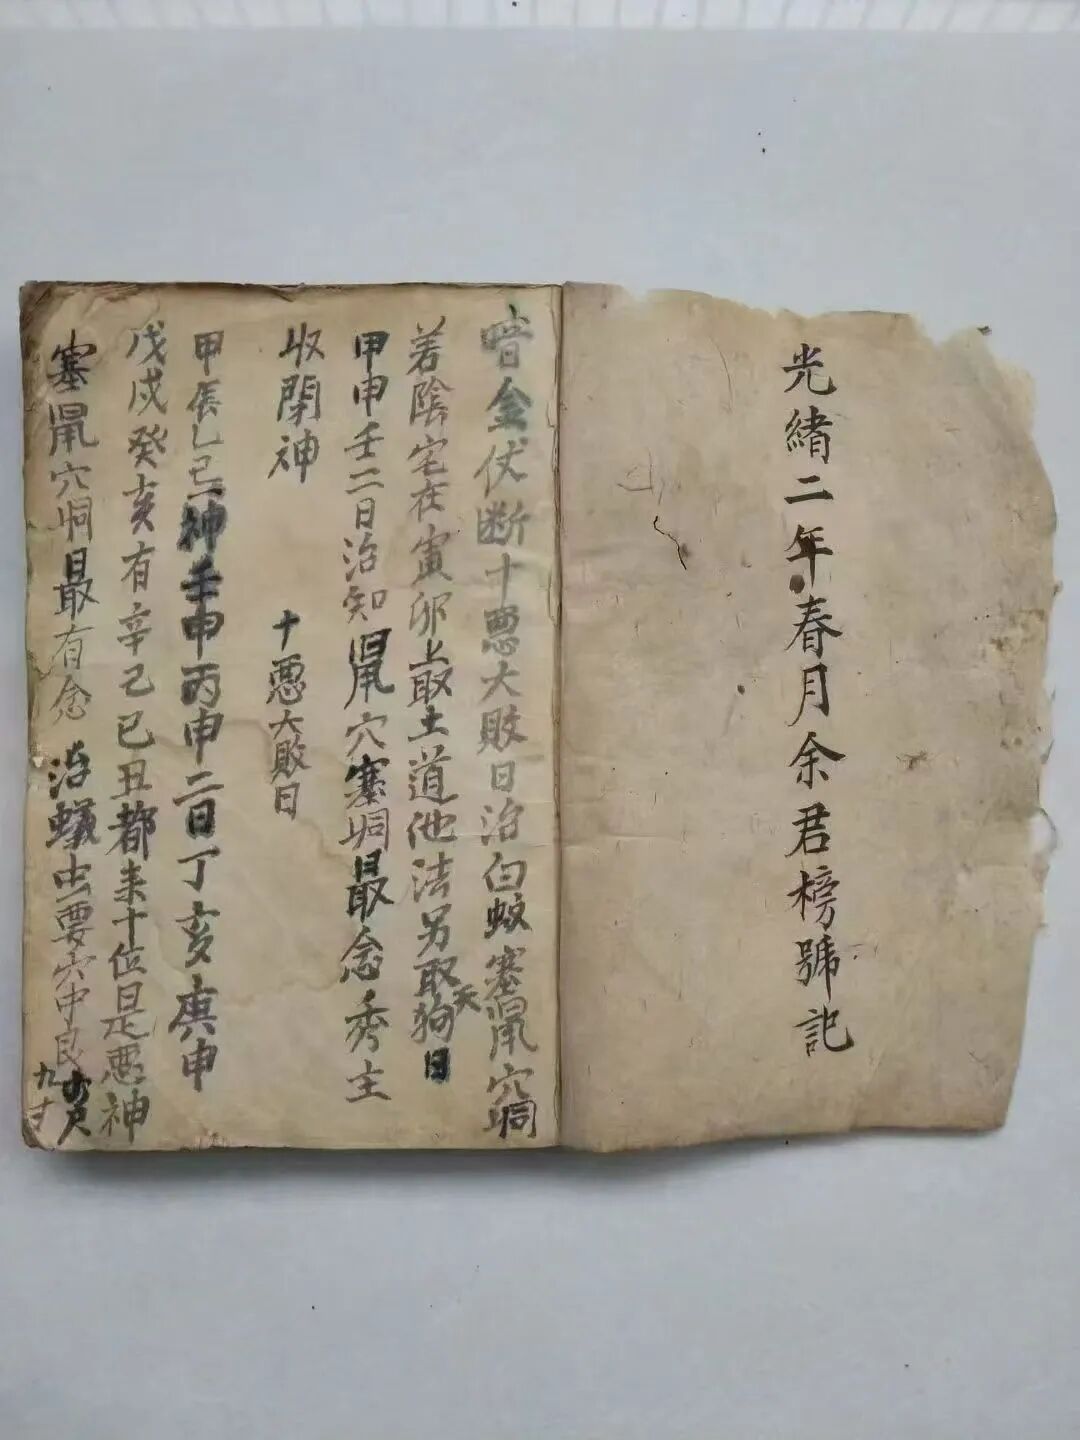 光緒二年春月余君榜號記
暗金伏断十悪大敗日治白蚁塞鼠穴垌
若陰宅在寅卯上取土道他法另取天狗日
甲申壬二日治知鼠穴塞垌最念秀主
收閉神 十悪大敗日
甲辰乙巳神壬申丙申二日丁亥庚申
戊戌癸亥有辛己巳丑都来十位是悪神
塞鼠穴垌最有念 治蟻虫要穴中良
九寸